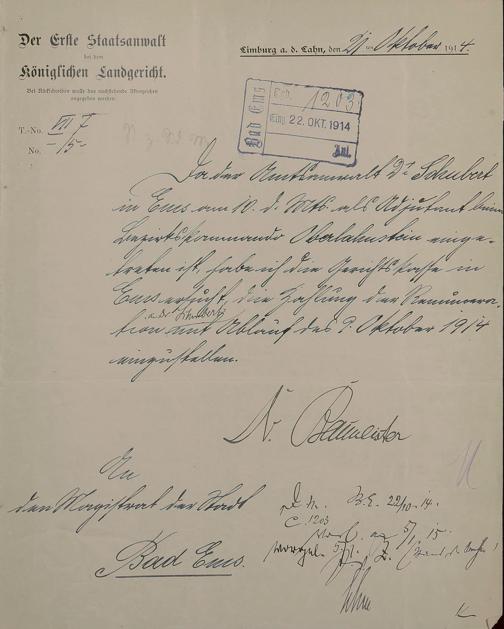 Der Erste Staatsanwalt
bei dem
Königlichen Landgericht.
Bei Rückschreiben wolle das nachstehende Aktenzeichen
angegeben werden:
T.-No. VII 7
No. -15-
Limburg a. d. Lahn, den 21. ten Oktober 1914.
Bad Ems
1203
Eing. 22. OKT. 1914
Anl.
Da der Amtsanwalt Dr. Schubert
in Ems am 10. d. Mts. als Adjutant beim
Bezirkskommando Oberlahnstein einge-
treten ist, habe ich die Gerichtskasse in
Ems ersucht, die Zahlung der Remunera-
tion an Dr. Schubert mit Ablauf des 9. Oktober 1914
einzustellen.
Dr. Baumeister
An
den Magistrat der Stadt
Bad Ems.
B.E. 22/10. 14.
C. 1203
5/1. 15.